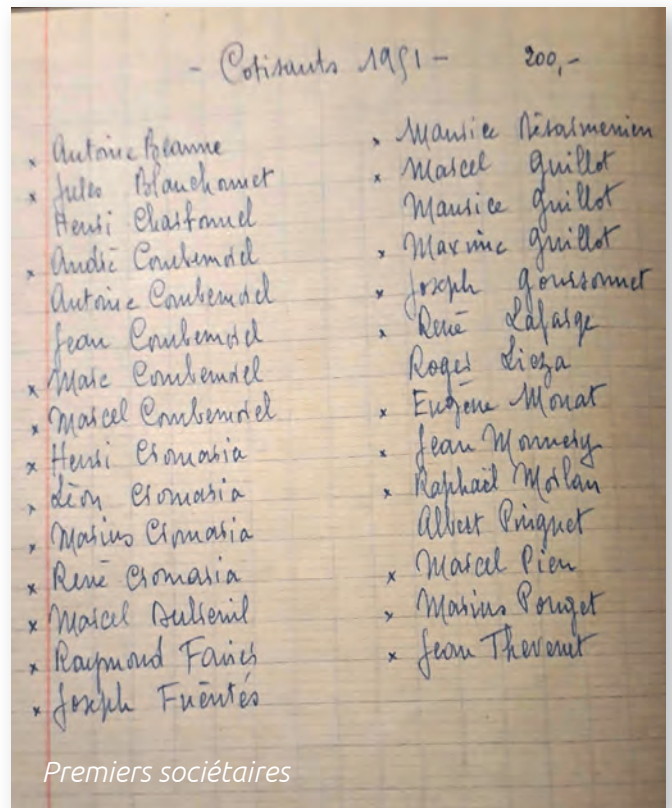 - Cotisants 1951 - 200,-
x Antoine Beanne
x Jules Blanchonnet
Henri Chastonnel
x André Combemorel
Antoine Combemorel
Jean Combemorel
x Marc Combemorel
x Marcel Combemorel
x Henri Cromaria
x Léon Cromaria
x Marius Cromaria
x René Cromaria
x Marcel
x Raymond
x Joseph Fuentés
x Maurice
x Marcel Guillot
Maurice Guillot
x Maxime Guillot
x Joseph Goussonnet
x René Lafarge
Roger
x Eugène Monat
x Jean Monnery
x Raphaël Morlan
Albert Pinguet
x Marcel Pien
x Marius Pouget
x Jean Thevenet
Premiers sociétaires